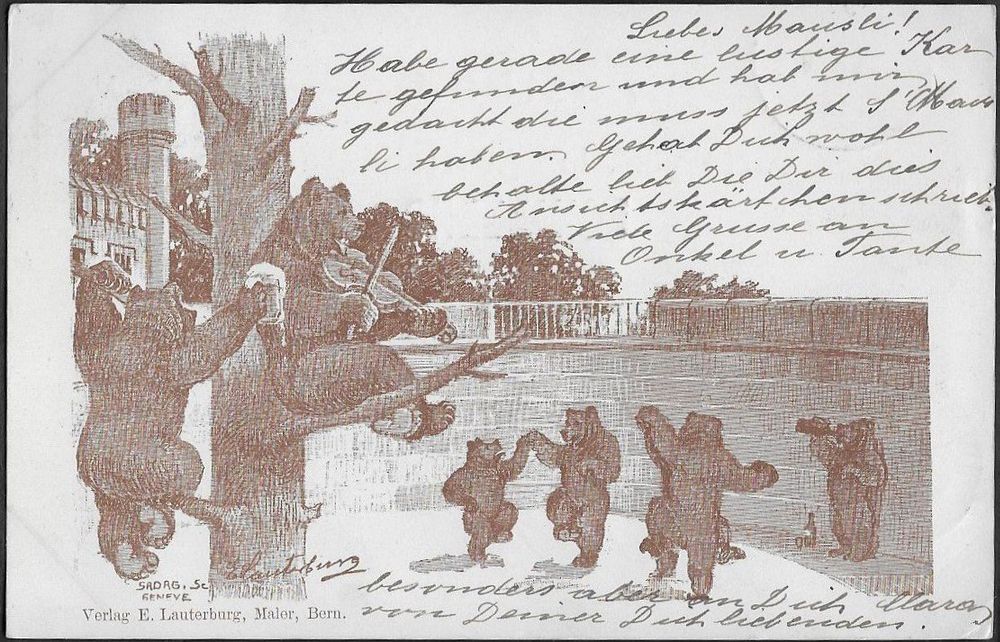 Liebes Mausli!
Habe gerade eine lustige Kar
te gefunden und hab mir
gedacht die muss jetzt s'Maus
li haben. Gehab Dich wohl
behalte lieb Die Dir dies
Ansichtskärtchen schrieb.
Viele Grüsse an
Onkel u. Tante
besonders aber an Dich Clara
von Deiner Dich liebenden.
E Lauterburg
SADAG. Sc.
GENEVE
Verlag E. Lauterburg, Maler, Bern.